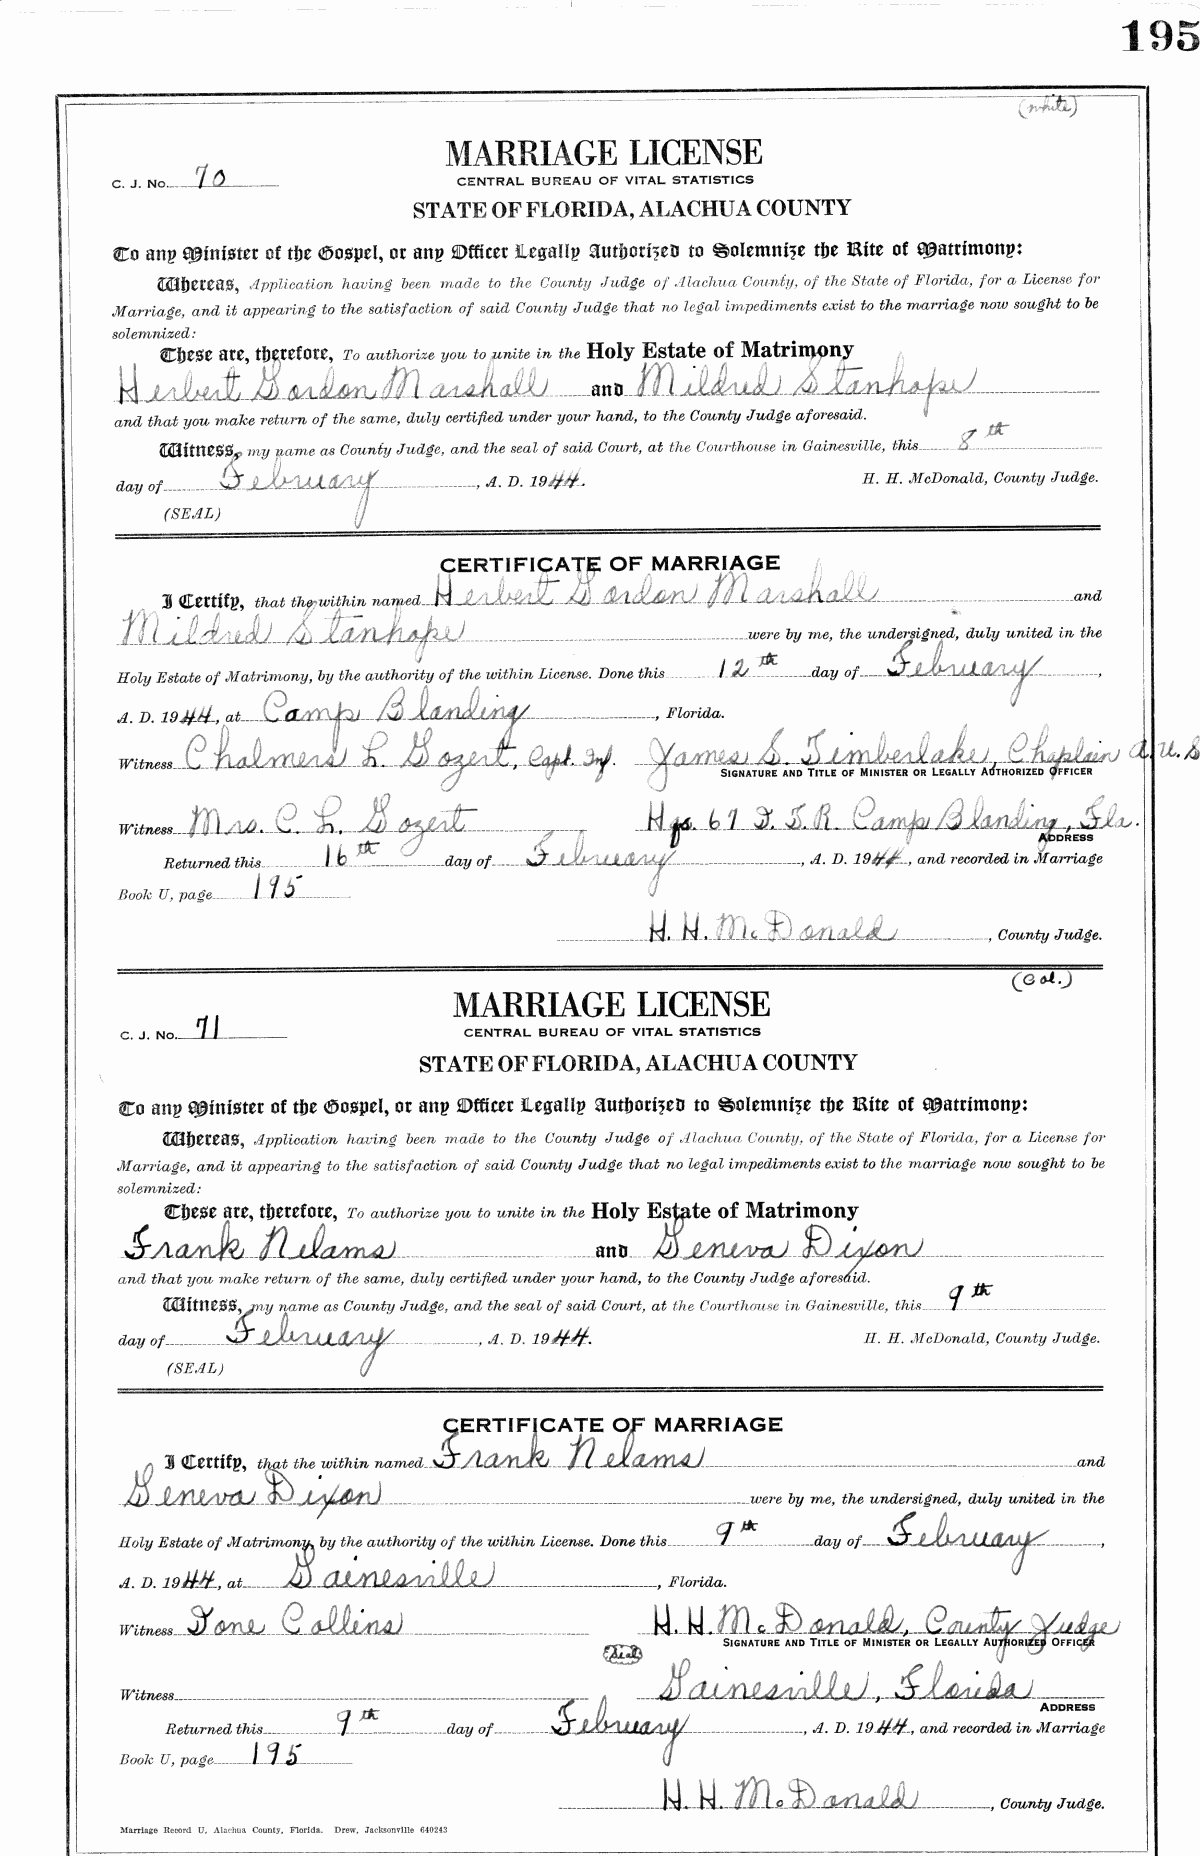 195
(white)
MARRIAGE LICENSE
C. J. No. 70
CENTRAL BUREAU OF VITAL STATISTICS
STATE OF FLORIDA, ALACHUA COUNTY
To any Minister of the Gospel, or any Officer Legally Authorized to Solemnize the Rite of Matrimony:
Whereas, Application having been made to the County Judge of Alachua County, of the State of Florida, for a License for
Marriage, and it appearing to the satisfaction of said County Judge that no legal impediments exist to the marriage now sought to be
solemnized:
These are, therefore, To authorize you to unite in the Holy Estate of Matrimony
Herbert Gordon Marshall and Mildred Stanhope
and that you make return of the same, duly certified under your hand, to the County Judge aforesaid.
Witness, my name as County Judge, and the seal of said Court, at the Courthouse in Gainesville, this 8th
day of February, A. D. 1944. H. H. McDonald, County Judge.
(SEAL)
CERTIFICATE OF MARRIAGE
I Certify, that the within named Herbert Gordon Marshall and
Mildred Stanhope were by me, the undersigned, duly united in the
Holy Estate of Matrimony, by the authority of the within License. Done this 12th day of February,
A. D. 1944, at Camp Blanding, Florida.
Witness Chalmers L. Gozert, Capt. Inf. James S. Timberlake, Chaplain A.U.S
SIGNATURE AND TITLE OF MINISTER OR LEGALLY AUTHORIZED OFFICER
Witness Mrs. C. L. Gozert Hqs. 67 I.T.R. Camp Blanding, Fla.
ADDRESS
Returned this 16th day of February, A. D. 1944, and recorded in Marriage
Book U, page 195
H. H. McDonald, County Judge.
(Col.)
MARRIAGE LICENSE
C. J. No. 71
CENTRAL BUREAU OF VITAL STATISTICS
STATE OF FLORIDA, ALACHUA COUNTY
To any Minister of the Gospel, or any Officer Legally Authorized to Solemnize the Rite of Matrimony:
Whereas, Application having been made to the County Judge of Alachua County, of the State of Florida, for a License for
Marriage, and it appearing to the satisfaction of said County Judge that no legal impediments exist to the marriage now sought to be
solemnized:
These are, therefore, To authorize you to unite in the Holy Estate of Matrimony
Frank Nelams and Geneva Dixon
and that you make return of the same, duly certified under your hand, to the County Judge aforesaid.
Witness, my name as County Judge, and the seal of said Court, at the Courthouse in Gainesville, this 9th
day of February, A. D. 1944. H. H. McDonald, County Judge.
(SEAL)
CERTIFICATE OF MARRIAGE
I Certify, that the within named Frank Nelams and
Geneva Dixon were by me, the undersigned, duly united in the
Holy Estate of Matrimony, by the authority of the within License. Done this 9th day of February,
A. D. 1944, at Gainesville, Florida.
Witness Ione Collins H. H. McDonald, County Judge
SIGNATURE AND TITLE OF MINISTER OR LEGALLY AUTHORIZED OFFICER
(Seal)
Witness Gainesville, Florida
ADDRESS
Returned this 9th day of February, A. D. 1944, and recorded in Marriage
Book U, page 195
H. H. McDonald, County Judge.
Marriage Record U, Alachua County, Florida. Drew, Jacksonville 640243